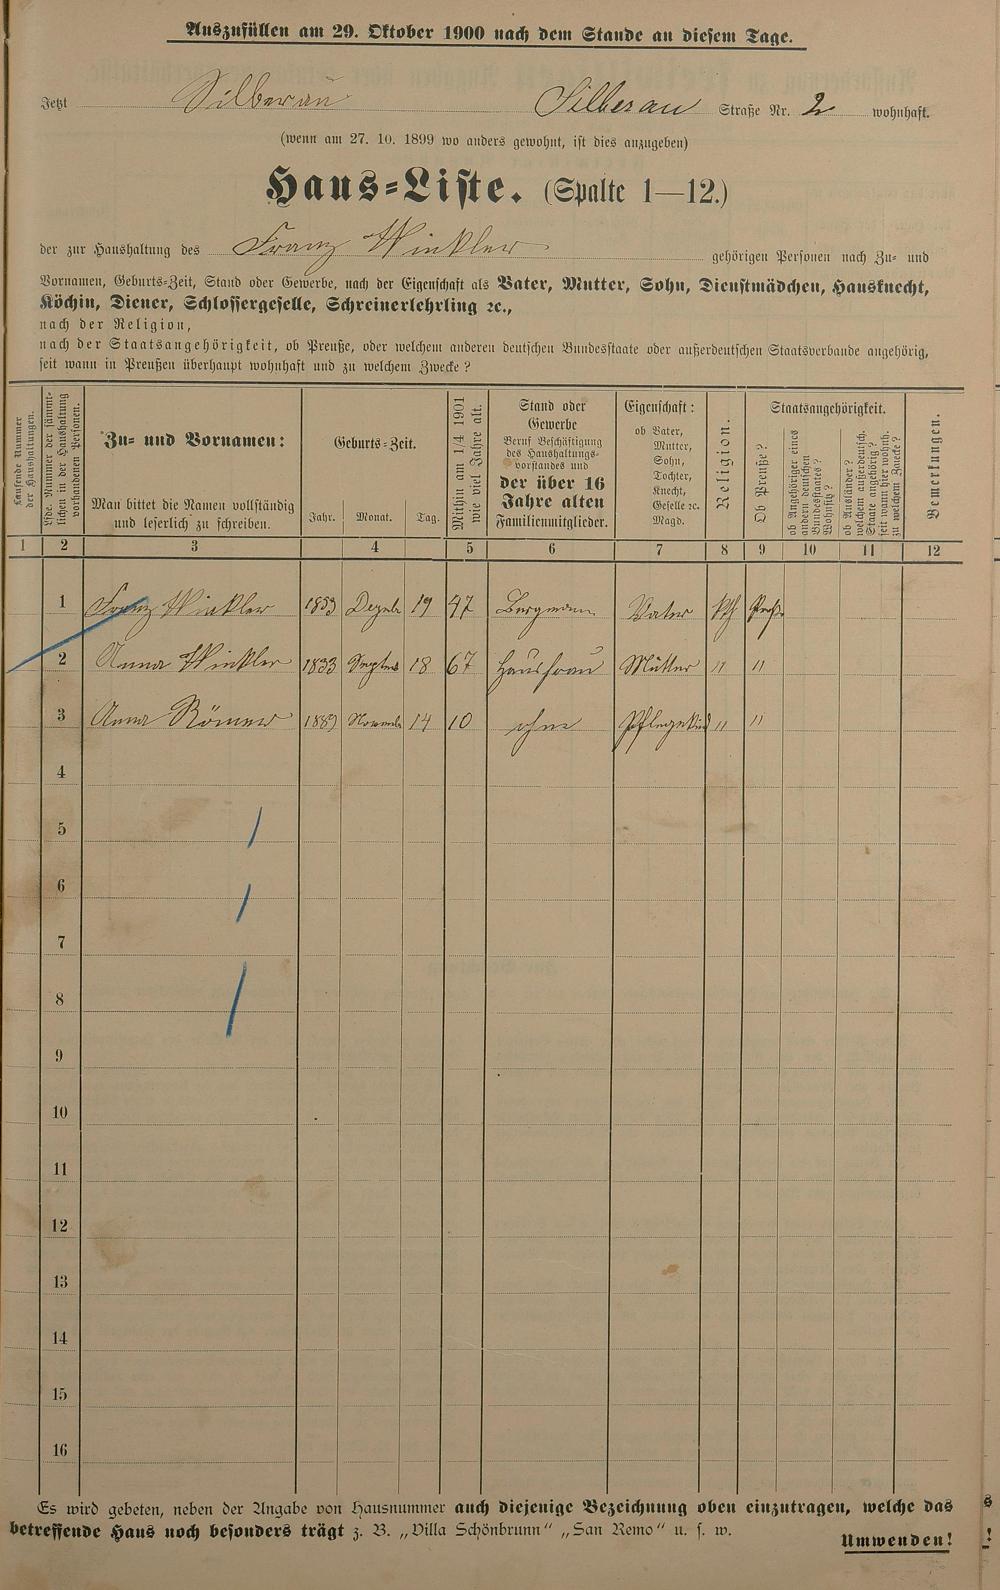 Auszufüllen am 29. Oktober 1900 nach dem Stande an diesem Tage.
Jetzt Silberau Silberau Straße Nr. 2 wohnhaft.
(wenn am 27. 10. 1899 wo anders gewohnt, ist dies anzugeben)
Haus-Liste. (Spalte 1—12.)
der zur Haushaltung des Franz Winkler gehörigen Personen nach Zu- und
Vornamen, Geburts-Zeit, Stand oder Gewerbe, nach der Eigenschaft als Vater, Mutter, Sohn, Dienstmädchen, Hausknecht,
Köchin, Diener, Schlossergeselle, Schreinerlehrling ꝛc.,
nach der Religion,
nach der Staatsangehörigkeit, ob Preuße, oder welchem anderen deutschen Bundesstaate oder außerdeutschen Staatsverbande angehörig,
seit wann in Preußen überhaupt wohnhaft und zu welchem Zwecke?
Laufende Nummer
der Haushaltungen.
Lfde. Nummer der sämmt-
lichen in der Haushaltung
vorhandenen Personen.
Zu- und Vornamen:
Man bittet die Namen vollständig
und leserlich zu schreiben.
Geburts-Zeit.
Jahr. Monat. Tag.
Mithin am 1/4 1901
wie viel Jahre alt.
Stand oder
Gewerbe
Beruf Beschäftigung
des Haushaltungs-
vorstandes und
der über 16
Jahre alten
Familienmitglieder.
Eigenschaft:
ob Vater,
Mutter,
Sohn,
Tochter,
Knecht,
Geselle ꝛc.
Magd.
Religion.
Staatsangehörigkeit.
Ob Preuße?
ob Angehöriger eines
andern deutschen
Bundesstaates?
Wohnsitz?
ob Ausländer?
welchem außerdeutsch.
Staate angehörig?
seit wann hier wohnh.
zu welchem Zwecke?
Bemerkungen.
1 2 3 4 5 6 7 8 9 10 11 12
1 Franz Winkler 1853 Dezeb 19 47 Bergmann Vater kth Preß
2 Anna Winkler 1833 Septem 18 67 Hausfrau Mutter " "
3 Anna Römer 1889 Novemb 14 10 ohne Pflegekind " "
4
5
6
7
8
9
10
11
12
13
14
15
16
Es wird gebeten, neben der Angabe von Hausnummer auch diejenige Bezeichnung oben einzutragen, welche das
betreffende Haus noch besonders trägt z. B. „Villa Schönbrunn" „San Remo" u. s. w.
Umwenden!